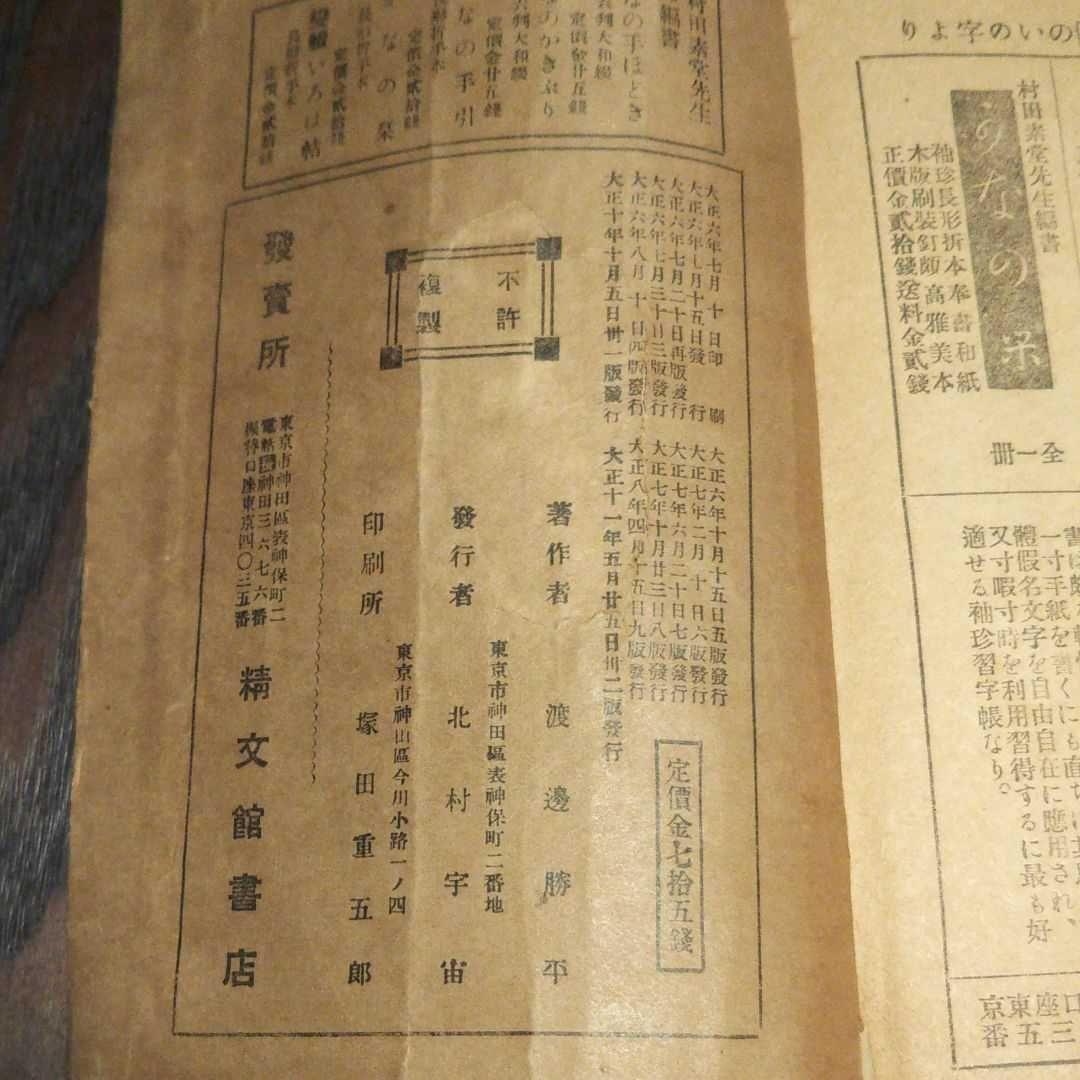 りよ字のいの
村田素堂先生編書
かなの栞
袖珍長形折本奉書和紙
木版刷裝釘頗高雅美本
正價金貳拾錢送料金貳錢
全一册
一寸手紙を書くにも直ちに
體假名文字を自由自在に應用され、
又寸暇寸時を利用習得するに最も好
適せる袖珍習字帳なり。
口座東京
三五番
村田素堂先生
編書
なの手ほどき
判大和綴
定價金廿五錢
のかきぶり
判大和綴
定價金廿五錢
なの手引
折手本
定價金貳拾錢
なの栞
折手本
定價金貳拾錢
いろは帖
折手本
定價金貳拾錢
大正六年七月十日印刷
大正六年七月十五日發行
大正六年七月二十日再版發行
大正六年七月三十日三版發行
大正六年八月十日四版發行
大正十年十月五日卅一版發行
大正六年十月十五日五版發行
大正七年二月十日六版發行
大正七年六月二十日七版發行
大正七年十月廿三日八版發行
大正八年四月十五日九版發行
大正十一年五月廿五日卅二版發行
定價金七拾五錢
不許
複製
著作者 渡邊勝平
東京市神田區表神保町二番地
發行者 北村宇宙
東京市神田區今川小路一ノ四
印刷所 塚田重五郎
發賣所
東京市神田區表神保町二
電話長神田三六七六番
振替口座東京四〇三五番
精文館書店